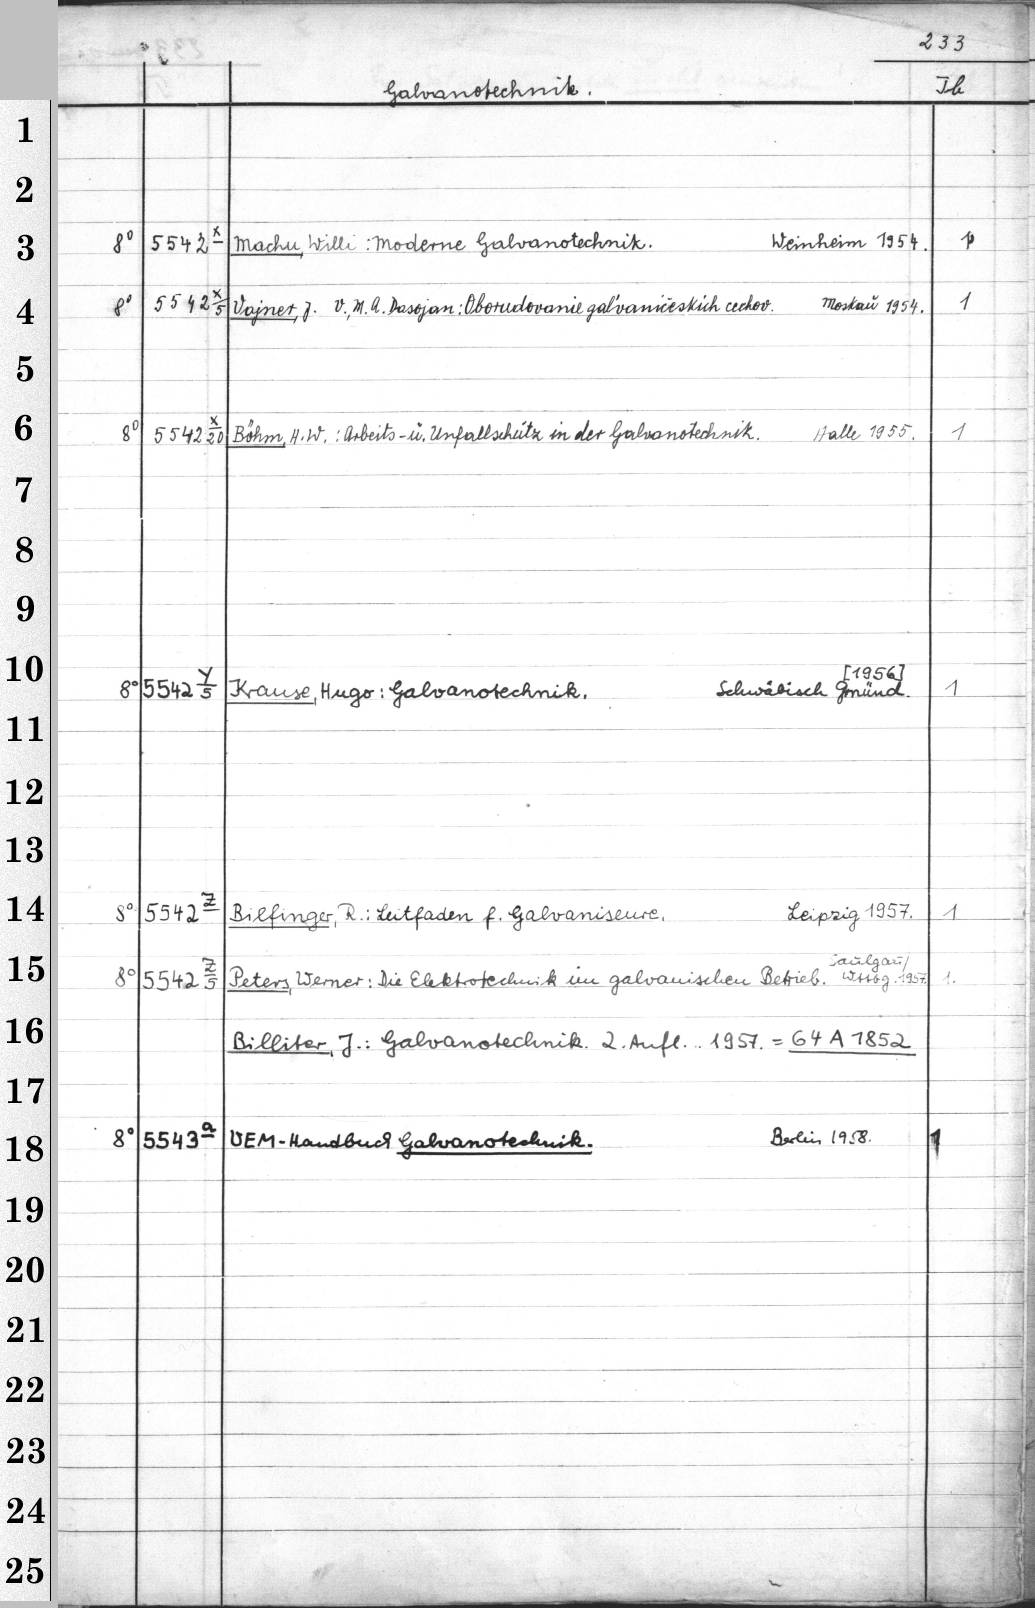 233
Galvanotechnik. Tb
1
2
3 8° 5542 x Machu, Willi: Moderne Galvanotechnik. Weinheim 1954. 1
4 8° 5542 x/5 Vajner, J. V., M. A. Dasojan: Oborudovanie gal'vaničeskich cechov. Moskau 1954. 1
5
6 8° 5542 x/20 Böhm, H. W.: Arbeits- u. Unfallschutz in der Galvanotechnik. Halle 1955. 1
7
8
9
[1956]
10 8° 5542 y/5 Krause, Hugo: Galvanotechnik. Schwäbisch Gmünd. 1
11
12
13
14 8° 5542 z Bilfinger, R.: Leitfaden f. Galvaniseure. Leipzig 1957. 1
Saulgau/
15 8° 5542 z/5 Peters, Werner: Die Elektrotechnik im galvanischen Betrieb. Wttbg. 1957. 1.
16 Billiter, J.: Galvanotechnik. 2. Aufl. .. 1957. = 64 A 1852
17
18 8° 5543 a VEM-Handbuch Galvanotechnik. Berlin 1958. 1
19
20
21
22
23
24
25